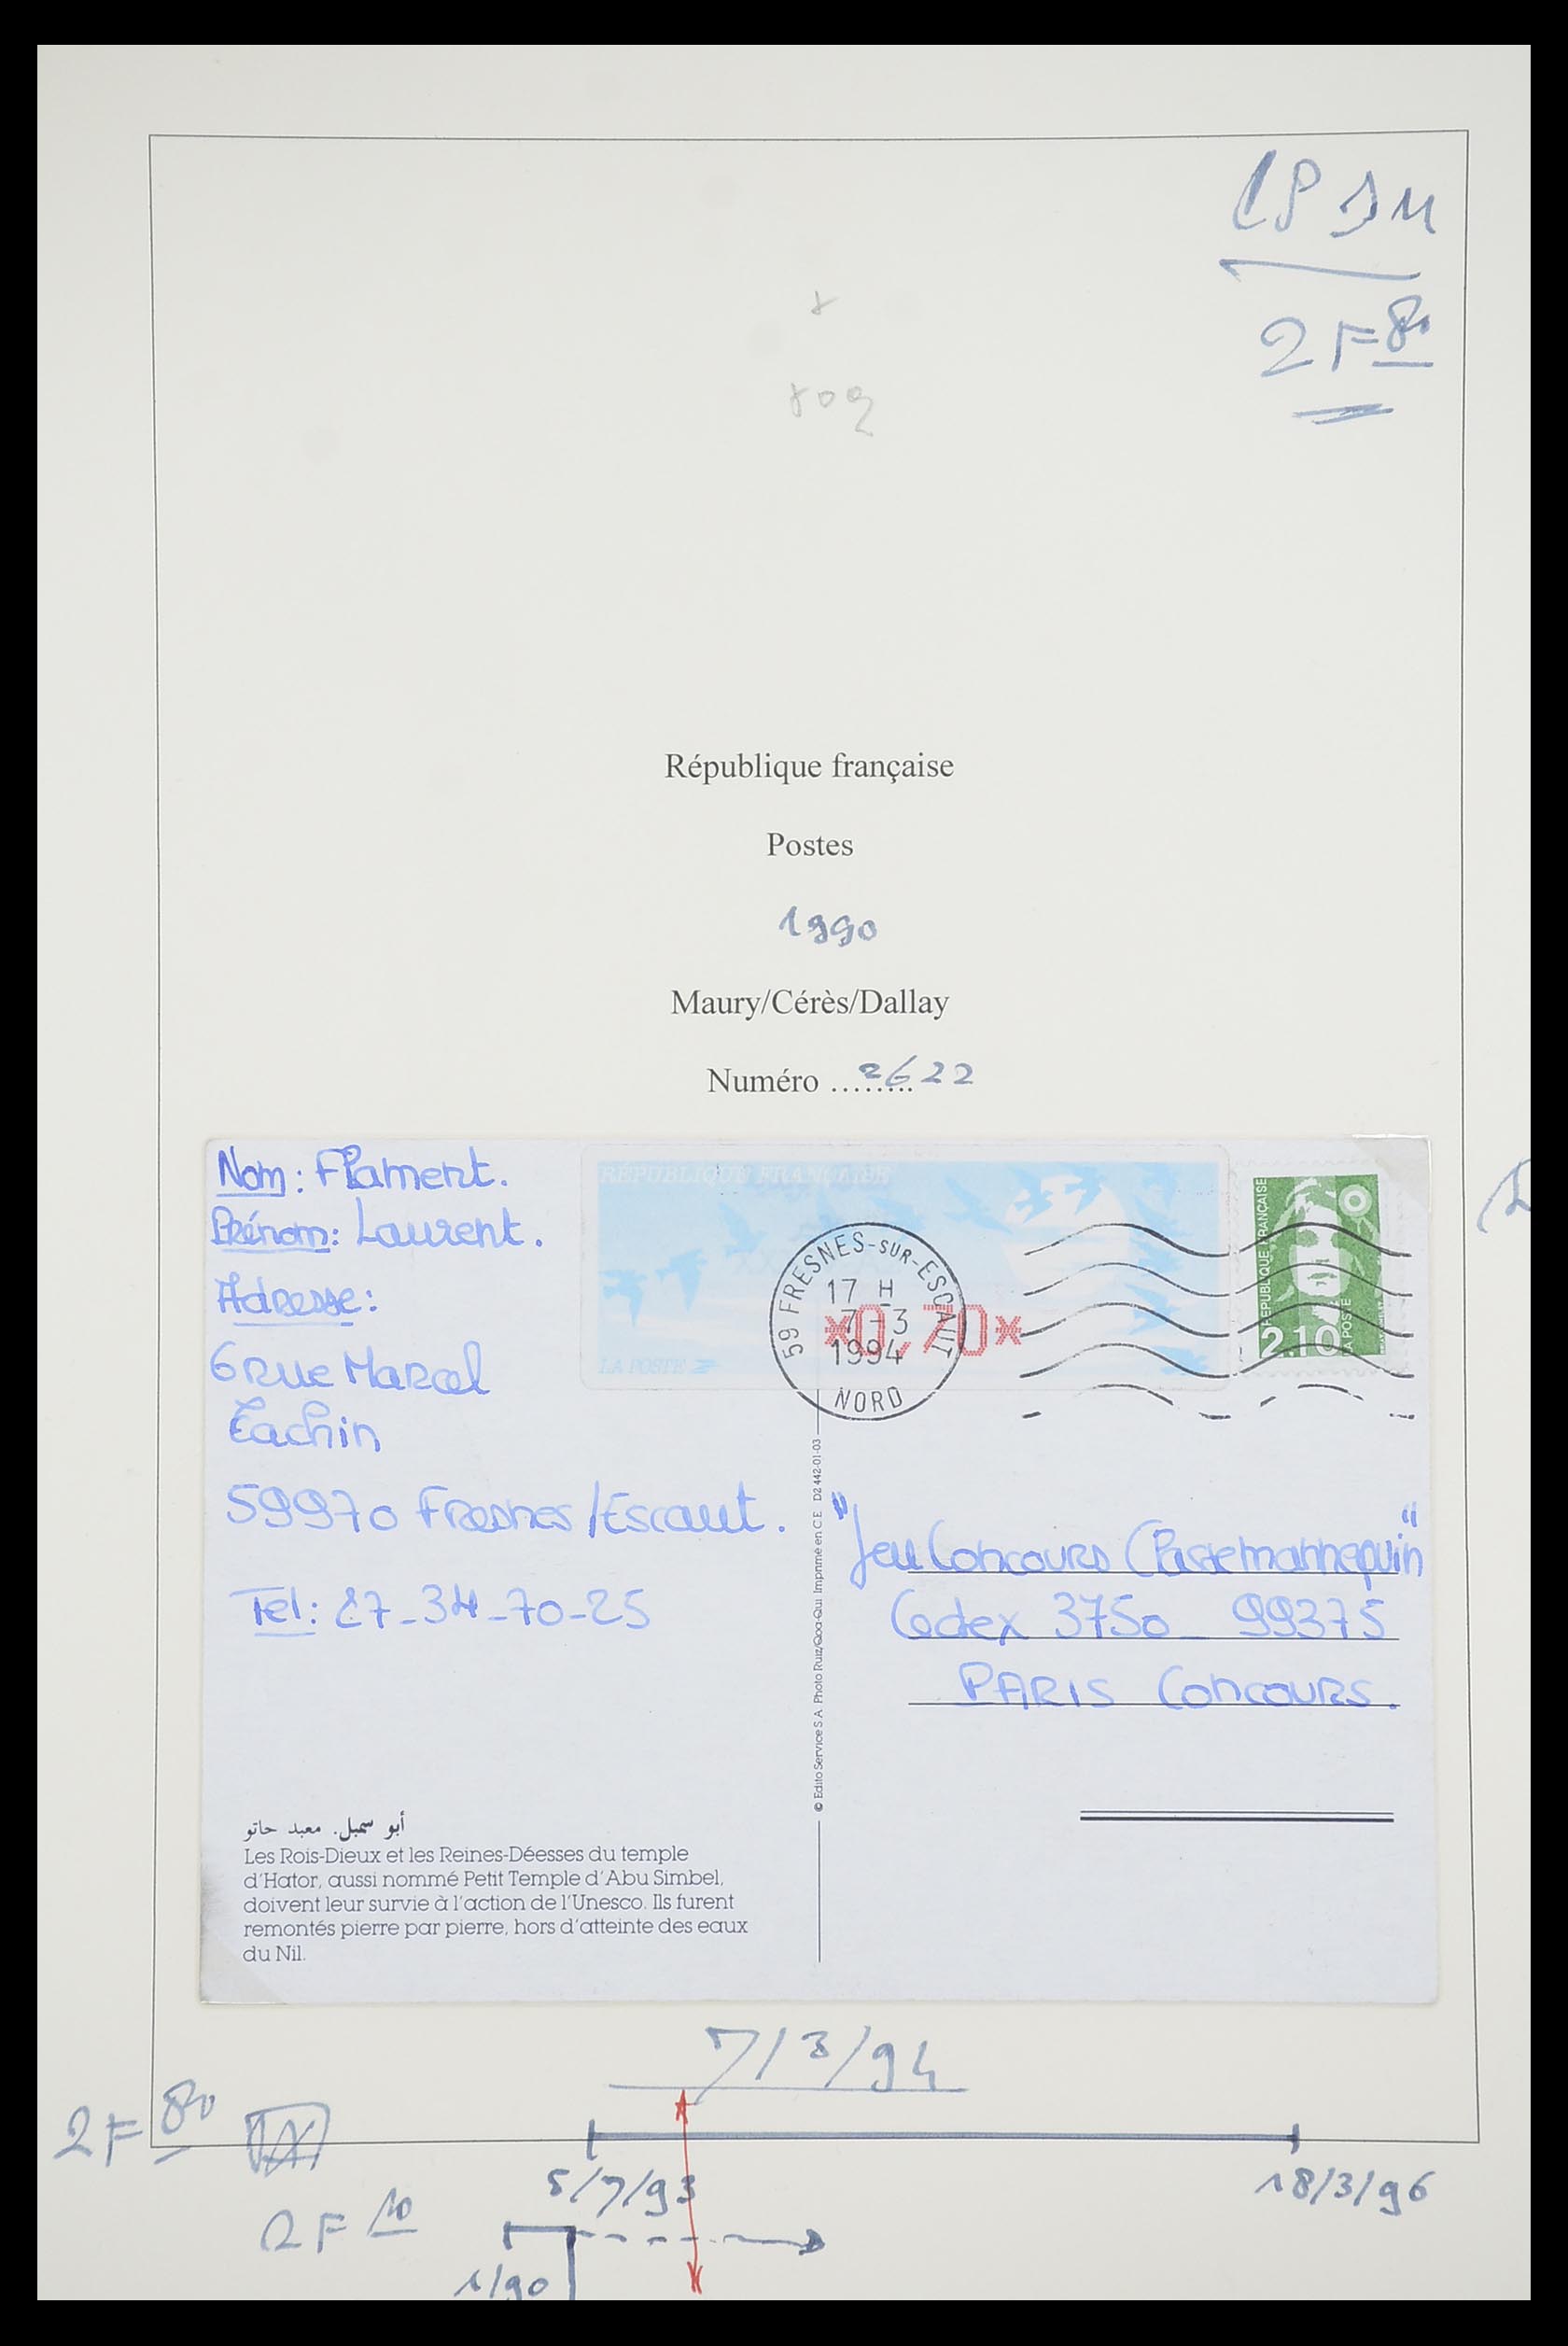 CP
2F80
République française
Postes
1990
Maury/Cérès/Dallay
Numéro ........ 2622
Nom: Flament.
Prénom: Laurent.
Adresse:
6 Rue Marcel
Cachin
59970 Fresnes/Escaut.
Tel: 27-34-70-25
RÉPUBLIQUE FRANÇAISE
LA POSTE
59 FRESNES-SUR-ESCAUT
17 H
7-3
1994
NORD
*0,70*
REPUBLIQUE FRANÇAISE
2.10
LA POSTE
© Edito Service S.A. Photo Ruiz/Qoa-Qui. Imprimé en C.E. D2 442-01-03
"Jeu Concours (Passe mannequin"
Cedex 3750 _ 99375
PARIS Concours.
أبو سمبل. معبد حاتو
Les Rois-Dieux et les Reines-Déesses du temple
d'Hator, aussi nommé Petit Temple d'Abu Simbel,
doivent leur survie à l'action de l'Unesco. Ils furent
remontés pierre par pierre, hors d'atteinte des eaux
du Nil.
7/3/94
2F80
5/7/93
18/3/96
2F10
1/90